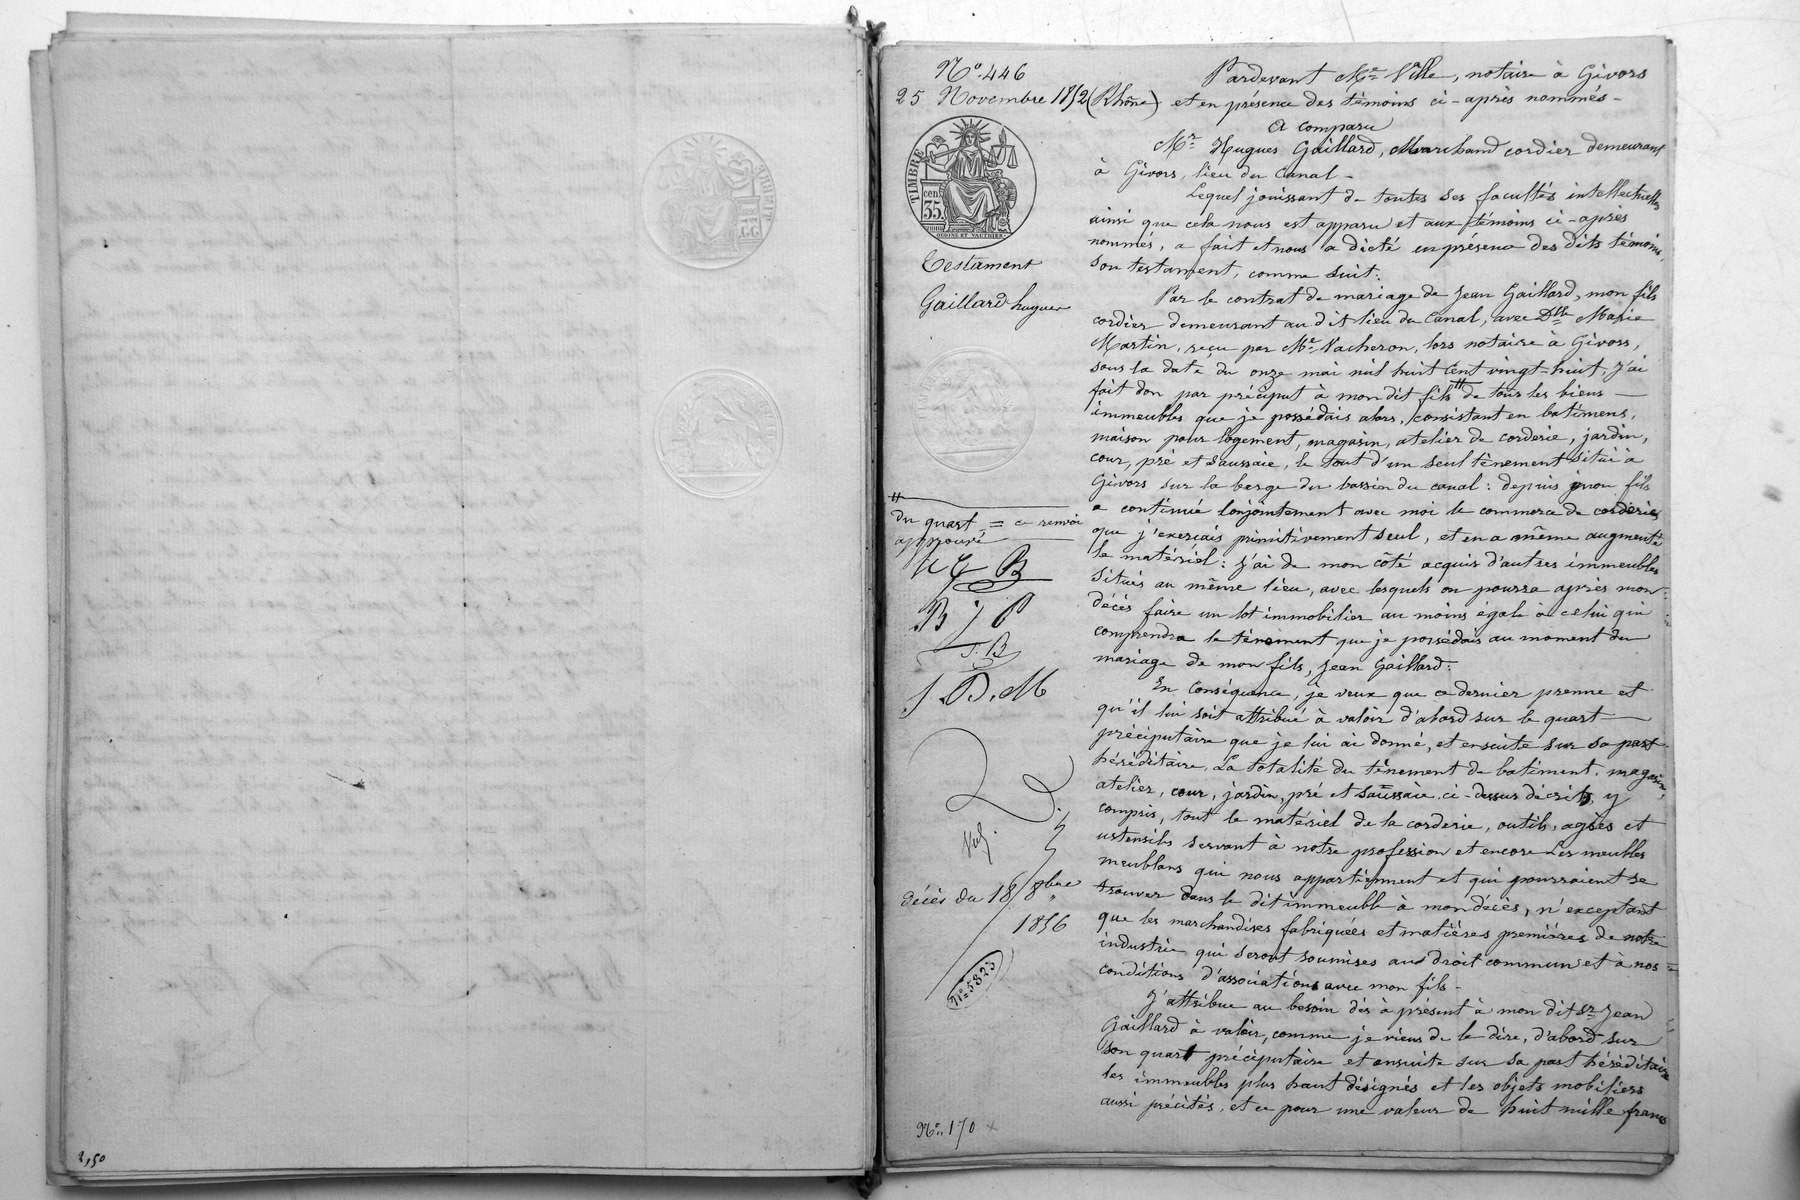 2,50
N° 446
25 Novembre 1852
TIMBRE
cen
35.
OUDINÉ ET VAUTHIER
Testament
Gaillard hugues
du quart = ce renvoi
approuvé
B
B J P
J. B
J. D. M
décès du 18 8bre
1856
N° 5823
N° 170
Pardevant Me Ville, notaire à Givors
(Rhône) et en présence des témoins ci-après nommés -
A comparu
Mr Hugues Gaillard, Marchand cordier demeurant
à Givors, lieu du Canal -
Lequel jouissant de toutes ses facultés intellectuelles
ainsi que cela nous est apparu et aux témoins ci-après
nommés, a fait et nous a dicté en présence des dits témoins,
son testament, comme suit:
Par le contrat de mariage de Jean Gaillard, mon fils
cordier demeurant au dit lieu du Canal, avec Dlle Marie
Martin, reçu par Me Vacheron, lors notaire à Givors,
sous la date du onze mai mil huit cent vingt-huit, j'ai
fait don par préciput à mon dit fils # de tous les biens —
immeubles que je possédais alors, consistant en batimens,
maison pour logement, magasin, atelier de corderie, jardin,
cour, pré et saussaie, le tout d'un seul tènement situé à
Givors sur la berge du bassin du canal: depuis mon fils
a continué conjointement avec moi le commerce de corderies
que j'exerçais primitivement seul, et en a même augmenté
le matériel: j'ai de mon côté acquis d'autres immeubles
situés au même lieu, avec lesquels on pourra après mon
décès faire un lot immobilier au moins égale à celui qui
comprendra le tènement que je possédais au moment du
mariage de mon fils, Jean Gaillard:
En conséquence, je veux que ce dernier prenne et
qu'il lui soit attribué à valoir d'abord sur le quart —
préciputaire que je lui ai donné, et ensuite sur sa part
héréditaire, La totalité du tènement de batiment, magasin,
atelier, cour, jardin, pré et saussaie, ci-dessus décrits, y
compris, tout le matériel de la corderie, outils, agrès et
ustensils servant à notre profession et encore Les meubles
meublans qui nous appartiennent et qui pourraient se
trouver dans le dit immeuble à mon décès, n'exceptant
que les marchandises fabriquées et matières premières de notre
industrie qui seront soumises au droit commun et à nos
conditions d'associations avec mon fils -
J'attribue au besoin dès à présent à mon dit Sr Jean
Gaillard à valoir, comme je viens de le dire, d'abord sur
son quart préciputaire et ensuite sur sa part héréditaire
les immeubles plus haut désignés et les objets mobiliers
aussi précités, et ce pour une valeur de huit mille francs